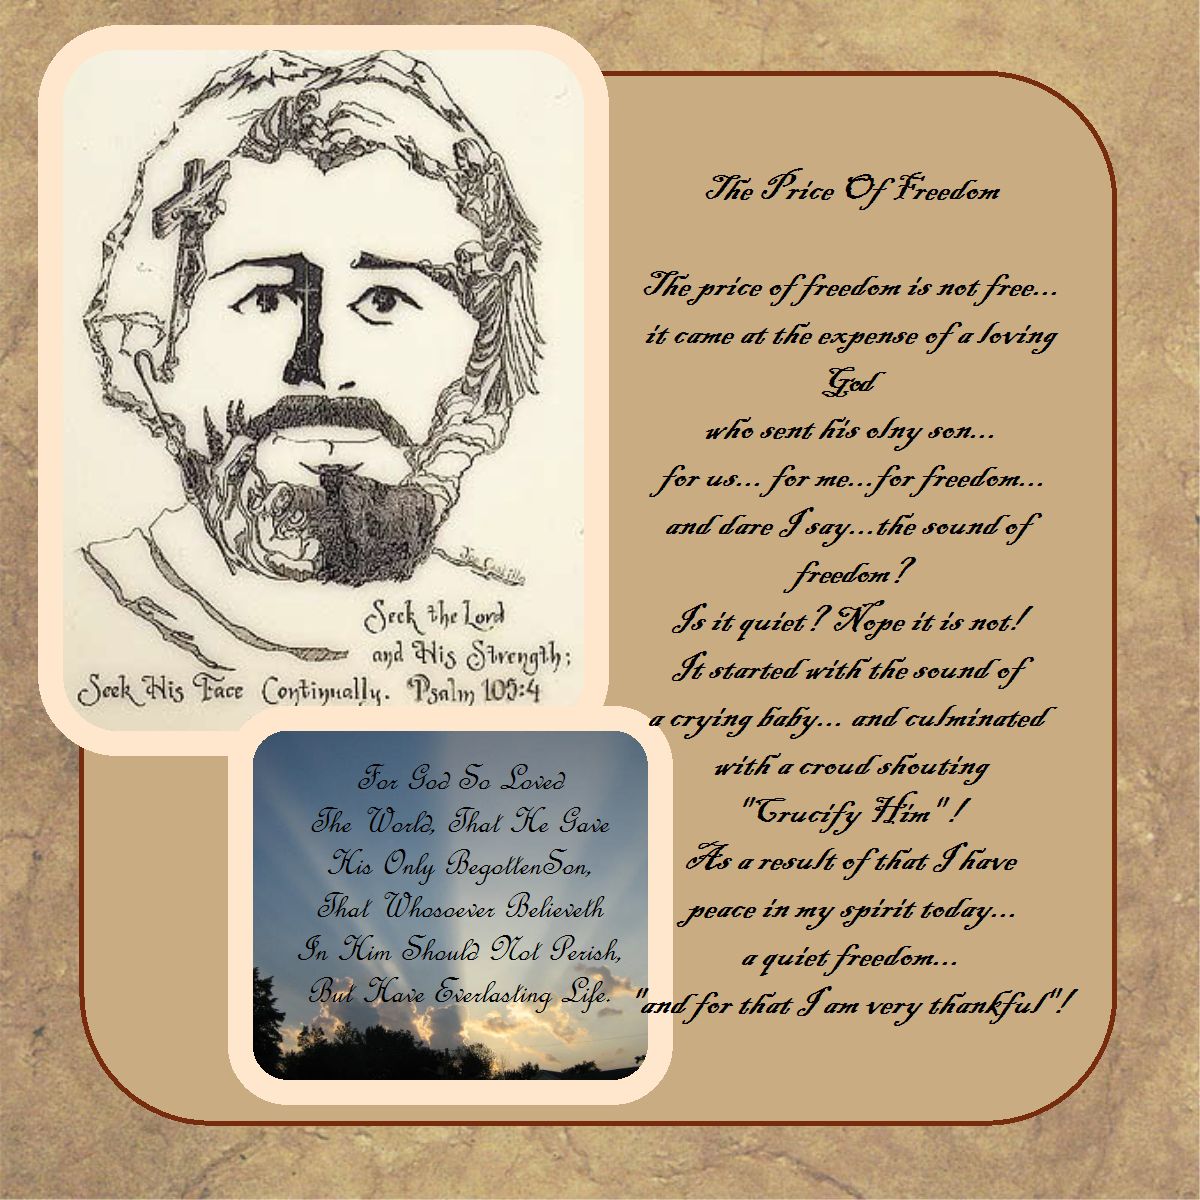 Seek the Lord
and His Strength;
Seek His Face Continually. Psalm 105:4
For God So Loved
The World, That He Gave
His Only BegottenSon,
That Whosoever Believeth
In Him Should Not Perish,
But Have Everlasting Life.
The Price Of Freedom
The price of freedom is not free...
it came at the expense of a loving
God
who sent his olny son...
for us... for me...for freedom...
and dare I say...the sound of
freedom?
Is it quiet? Nope it is not!
It started with the sound of
a crying baby... and culminated
with a croud shouting
"Crucify Him"!
As a result of that I have
peace in my spirit today...
a quiet freedom...
"and for that I am very thankful"!